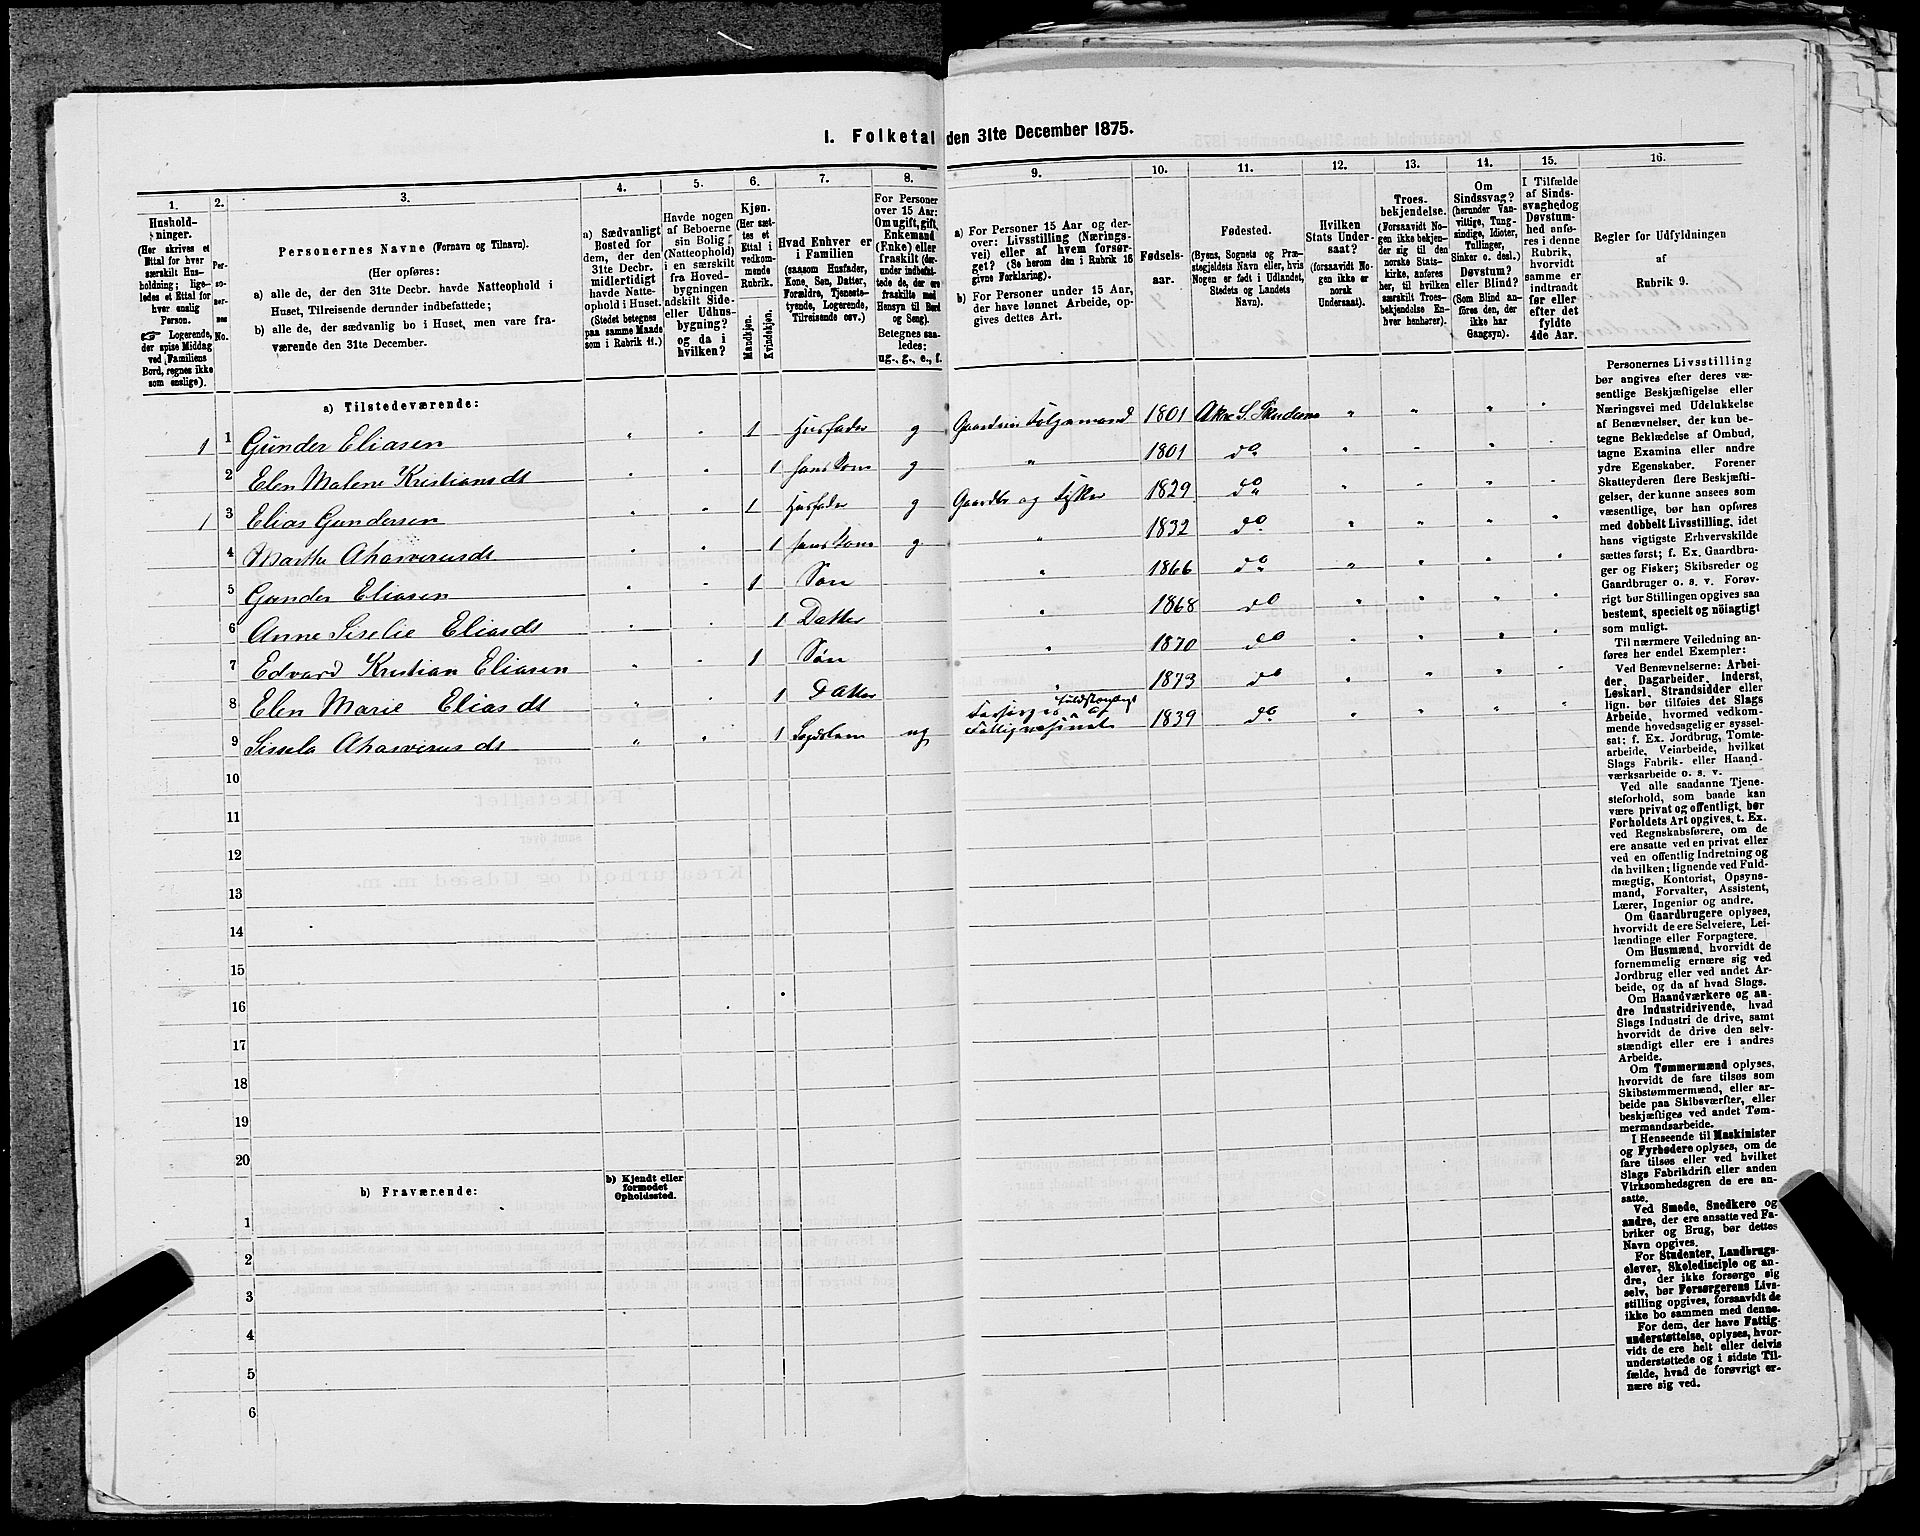 I. Folketal den 31te December 1875.
1.
2.
3.
4.
5.
6.
7.
8.
9.
10.
11.
12.
13.
14.
15.
16.
Hushold-
ninger.
(Her skrives et
Ettal for hver
særskilt Hus-
holdning; lige-
ledes et Ettal for
hver enslig
Person.
☞ Logerende,
der spise Middag
ved Familiens
Bord, regnes ikke
som enslige).
Per-
so-
ner-
nes
No.
Personernes Navne (Fornavn og Tilnavn).
(Her opføres:
a) alle de, der den 31te Decbr. havde Natteophold i
Huset, Tilreisende derunder indbefattede;
b) alle de, der sædvanlig bo i Huset, men vare fra-
værende den 31te December.
a) Sædvanligt
Bosted for
dem, der den
31te Decbr.
midlertidigt
havde Natte-
ophold i Huset.
(Stedet betegnes
paa samme Maade
som i Rubrik 11.)
Havde nogen
af Beboerne
sin Bolig
(Natteophold)
i en særskilt
fra Hoved-
bygningen
adskilt Side-
eller Udhus-
bygning?
og da i
hvilken?
Kjøn.
(Her sæt-
tes et
Ettal i
vedkom-
mende
Rubrik.
Mandkjøn.
Kvindekjøn.
Hvad Enhver er
i Familien
(saasom Husfader,
Kone, Søn, Datter,
Forældre, Tjeneste-
tyende, Logerende,
Tilreisende osv.)
For Personer
over 15 Aar:
Om ugift, gift,
Enkemand
(Enke) eller
fraskilt (der-
under indbefat-
tede de, der ere
fraskilte med
Hensyn til Bord
og Seng).
Betegnes saa-
ledes:
ug., g., e., f.
a) For Personer 15 Aar og der-
over: Livsstilling (Nærings-
vei) eller af hvem forsør-
get? (Se herom den i Rubrik 16
givne Forklaring).
b) For Personer under 15 Aar,
der have lønnet Arbeide, op-
gives dettes Art.
Fødsels-
aar.
Fødested.
(Byens, Sognets og Præ-
stegjeldets Navn eller, hvis
Nogen er født i Udlandet,
Stedets og Landets
Navn).
Hvilken
Stats Under-
saat?
(forsaavidt No-
gen ikke er
norsk
Undersaat).
Troes-
bekjendelse.
(Forsaavidt No-
gen ikke bekjen-
der sig til den
norske Stats-
kirke, anføres
her, til hvilken
særskilt Troes-
bekjendelse En-
hver henhører).
Om
Sindssvag?
(herunder Van-
vittige, Tung-
sindige, Idioter,
Tullinger,
Sinker o. desl.)
Døvstum?
eller Blind?
(Som Blind an-
føres den, der
ikke har
Gangsyn).
I Tilfælde
af Sinds-
svaghed og
Døvstum-
hed anfø-
res i denne
Rubrik,
hvorvidt
samme er
indtraadt
før eller
efter det
fyldte
4de Aar.
Regler for Udfyldningen
af
Rubrik 9.
a) Tilstedeværende:
1 1 Gunder Eliasen 1 Husfader g 1801
2 Elen Malene Kristiansdt 1 g 1801 do
1 3 Elias Gundersen 1 Husfader g Gaardbr og Fisker 1829 do
4 Marthe Ahasverusdt 1 g 1832 do
5 Gunder Eliasen 1 Søn 1866 do
6 Anne Siselie Eliasdt 1 Datter 1868 do
7 Edvard Kristian Eliasen 1 Søn 1870 do
8 Elen Marie Eliasdt 1 Datter 1873 do
9 Sissela Ahasverusdt 1 ug Forsørges 1839 do
10
11
12
13
14
15
16
17
18
19
20
b) Fraværende:
b) Kjendt eller
formodet
Opholdssted.
1
2
3
4
5
6
Personernes Livsstilling
bør angives efter deres væ-
sentlige Beskjæftigelse eller
Næringsvei med Udelukkelse
af Benævnelser, der kun be-
tegne Beklædelse af Ombud,
tagne Examina eller andre
ydre Egenskaber. Forener
Skatteyderen flere Beskjæfti-
gelser, der kunne ansees som
væsentlige, bør han opføres
med dobbelt Livsstilling, idet
hans vigtigste Erhvervskilde
sættes først; f. Ex. Gaardbru-
ger og Fisker; Skibsreder og
Gaardbruger o. s. v. Forøv-
rigt bør Stillingen opgives saa
bestemt, specielt og nøiagtigt
som muligt.
Til nærmere Veiledning an-
føres her endel Exempler:
Ved Benævnelserne: Arbei-
der, Dagarbeider, Inderst,
Løskarl, Strandsidder eller
lign. bør tilføies det Slags
Arbeide, hvormed vedkom-
mende hovedsagelig er syssel-
sat; f. Ex. Jordbrug, Tomte-
arbeide, Veiarbeide, hvilket
Slags Fabrik- eller Haand-
værksarbeide o. s. v.
Ved alle saadanne Tjene-
steforhold, som baade kan
være privat og offentligt, bør
Forholdets Art opgives, t. Ex.
ved Regnskabsførere, om de
ere ansatte ved en privat eller
ved en offentlig Indretning og
da hvilken; lignende ved Fuld-
mægtig, Kontorist, Opsyns-
mand, Forvalter, Assistent,
Lærer, Ingeniør og andre.
Om Gaardbrugere oplyses,
hvorvidt de ere Selveiere, Lei-
lændinge eller Forpagtere.
Om Husmænd, hvorvidt de
fornemmelig ernære sig ved
Jordbrug eller ved andet Ar-
beide, og da af hvad Slags.
Om Haandværkere og an-
dre Industridrivende, hvad
Slags Industri de drive, samt
hvorvidt de drive den selv-
stændigt eller ere i andres
Arbeide.
Om Tømmermænd oplyses,
hvorvidt de fare tilsøs som
Skibstømmermænd, eller ar-
beide paa Skibsværfter, eller
beskjæftiges ved andet Tøm-
mermandsarbeide.
I Henseende til Maskinister
og Fyrbødere oplyses, om de
fare tilsøs eller ved hvilket
Slags Fabrikdrift eller anden
Virksomhedsgren de ere an-
satte.
Ved Smede, Snedkere og
andre, der ere ansatte ved Fa-
briker og Brug, bør dettes
Navn opgives.
For Studenter, Landbrugs-
elever, Skoledisciple og an-
dre, der ikke forsørge sig
selv, bør Forsørgerens Livs-
stilling opgives, forsaavidt de
ikke bo sammen med denne.
For dem, der have Fattig-
understøttelse, oplyses, hvor-
vidt de ere helt eller delvis
understøttede og i sidste Til-
fælde, hvad de forøvrigt er-
nære sig ved.